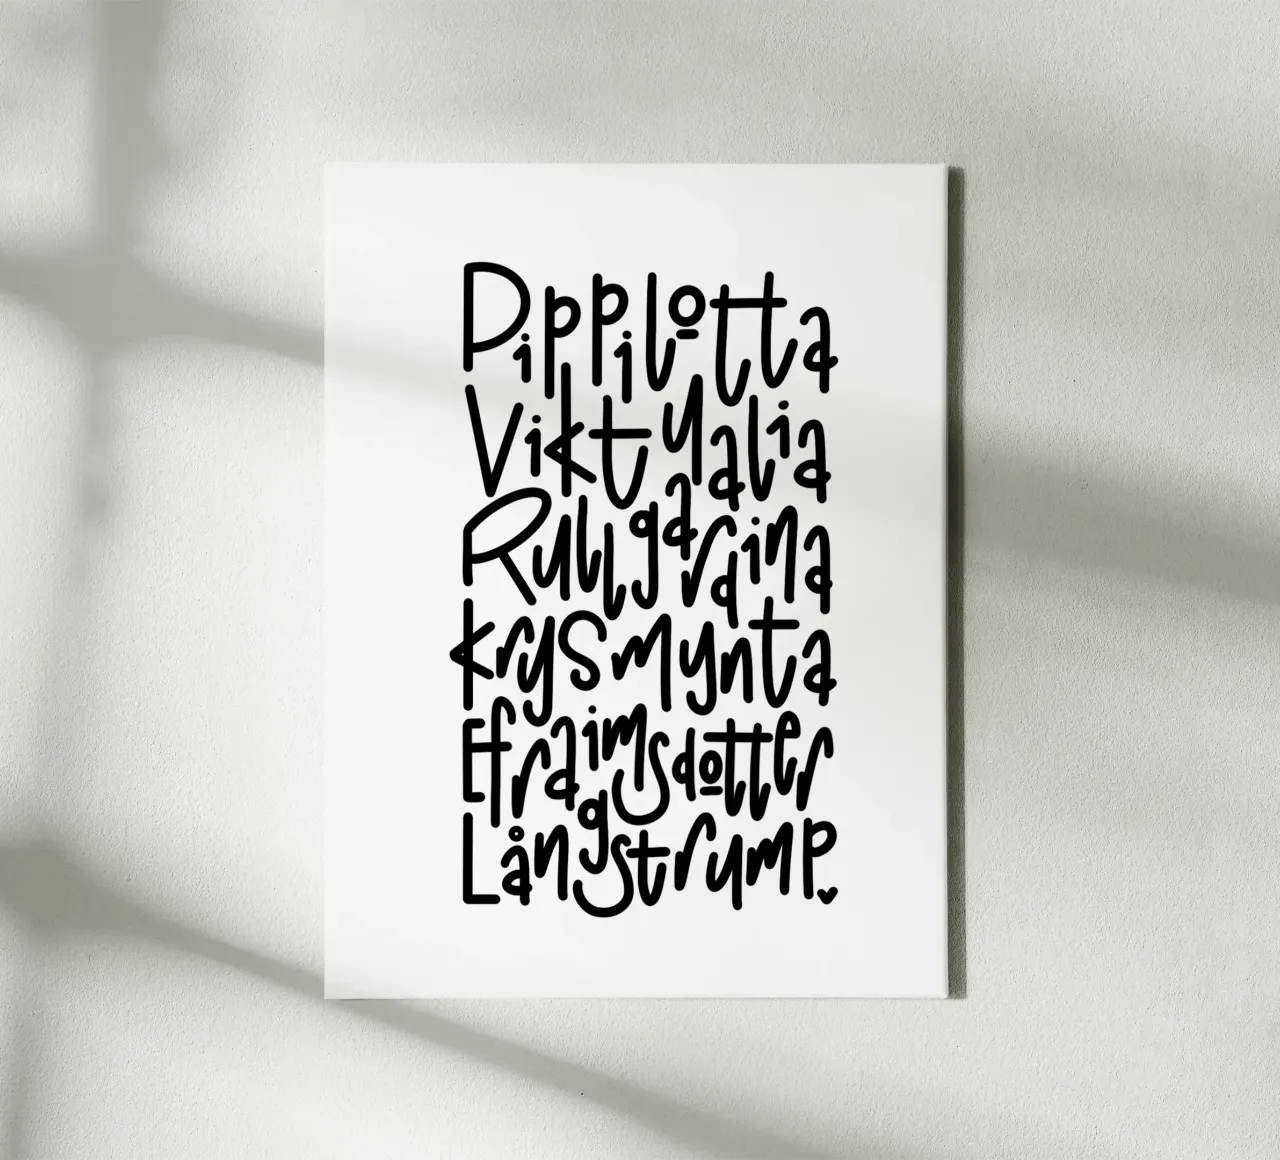 Pippilotta
Viktualia
Rullgardina
Krysmynta
Efraimsdotter
Långstrump